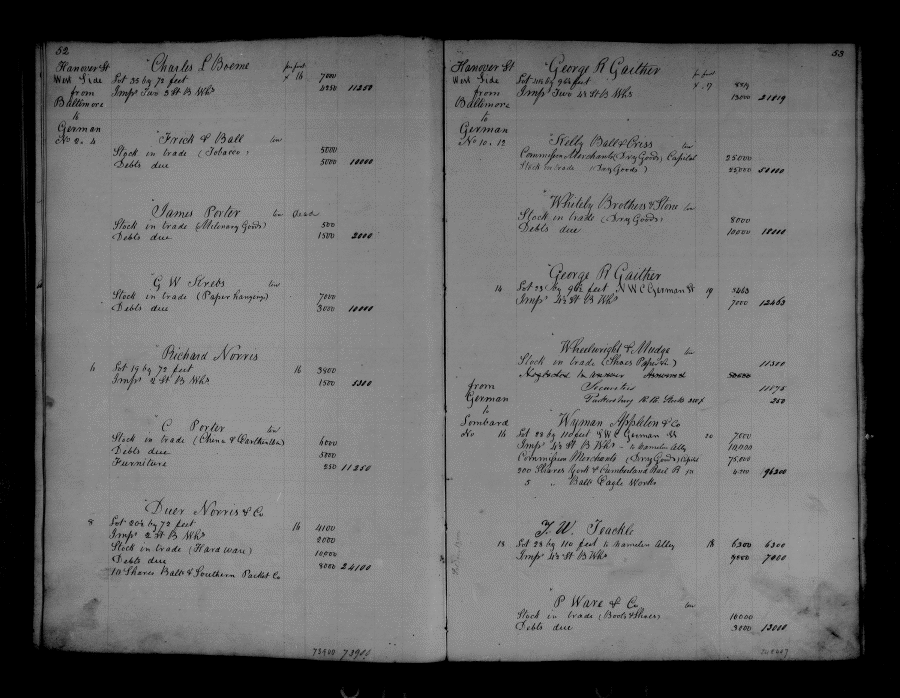 52
Hanover St Charles L Boeme per foot
West Side Lot 35 by 72 feet x 16 7000
from Imps Two 3 St B Whs 4250 11250
Baltimore
to
German
No 2. 4 Frick & Ball
Stock in trade (Tobacco) 5000
Debts due 5000 10000
James Porter Dead
Stock in trade (Milenary Goods) 500
Debts due 1500 2000
G W Krebs
Stock in trade (Paper hangings) 7000
Debts due 3000 10000
Richard Norris
6 Lot 19 by 72 feet 16 3800
Imps 2 St B Whs 1500 5300
C Porter
Stock in trade (China & Earthenware) 6000
Debts due 5000
Furniture 250 11250
Duer Norris & Co
8 Lot 20½ by 72 feet 16 4100
Imps 2 St B Whs 2000
Stock in trade (Hard ware) 10000
Debts due 8000 24100
10 Shares Balto & Southern Packet Co
73900 73900
53
Hanover St George R Gaither per foot
West Side feet
from Imps Two 4 St B Whs 13000 21819
Baltimore
to
German
No 10. 12 Kelly Ball & Criss
Commission Merchants (Dry Goods) Capital 25000
Stock in trade (Dry Goods) 25000 50000
Whitely Brothers & Stone
Stock in trade (Dry Goods) 8000
Debts due 10000 18000
George R Gaither
14 Lot 23 by 96½ feet N W C German St 19 5463
Imps 4½ St B Whs 7000 12463
Wheelwright & Mudge
Stock in trade (Shoes Paper &c) 11300
from Securities 11175
German R. R. Stock 250
to
Lombard Wyman Appleton & Co
No 16 Lot 28 by 110 feet S W C German St 20 7000
Imps 4½ St B Whs to Hamelin Alley
Commission Merchants (Dry Goods) Capital 75,000
200 Shares York & Cumberland Rail R 96200
5 " Balto Eagle Works
T. W. Teackle
18 Lot 28 by 110 feet to Hamelin Alley 18 6300 6300
Imps 4½ St B Whs 7000
P Ware & Co
Stock in trade (Boots & Shoes) 10000
Debts due 3000 13000